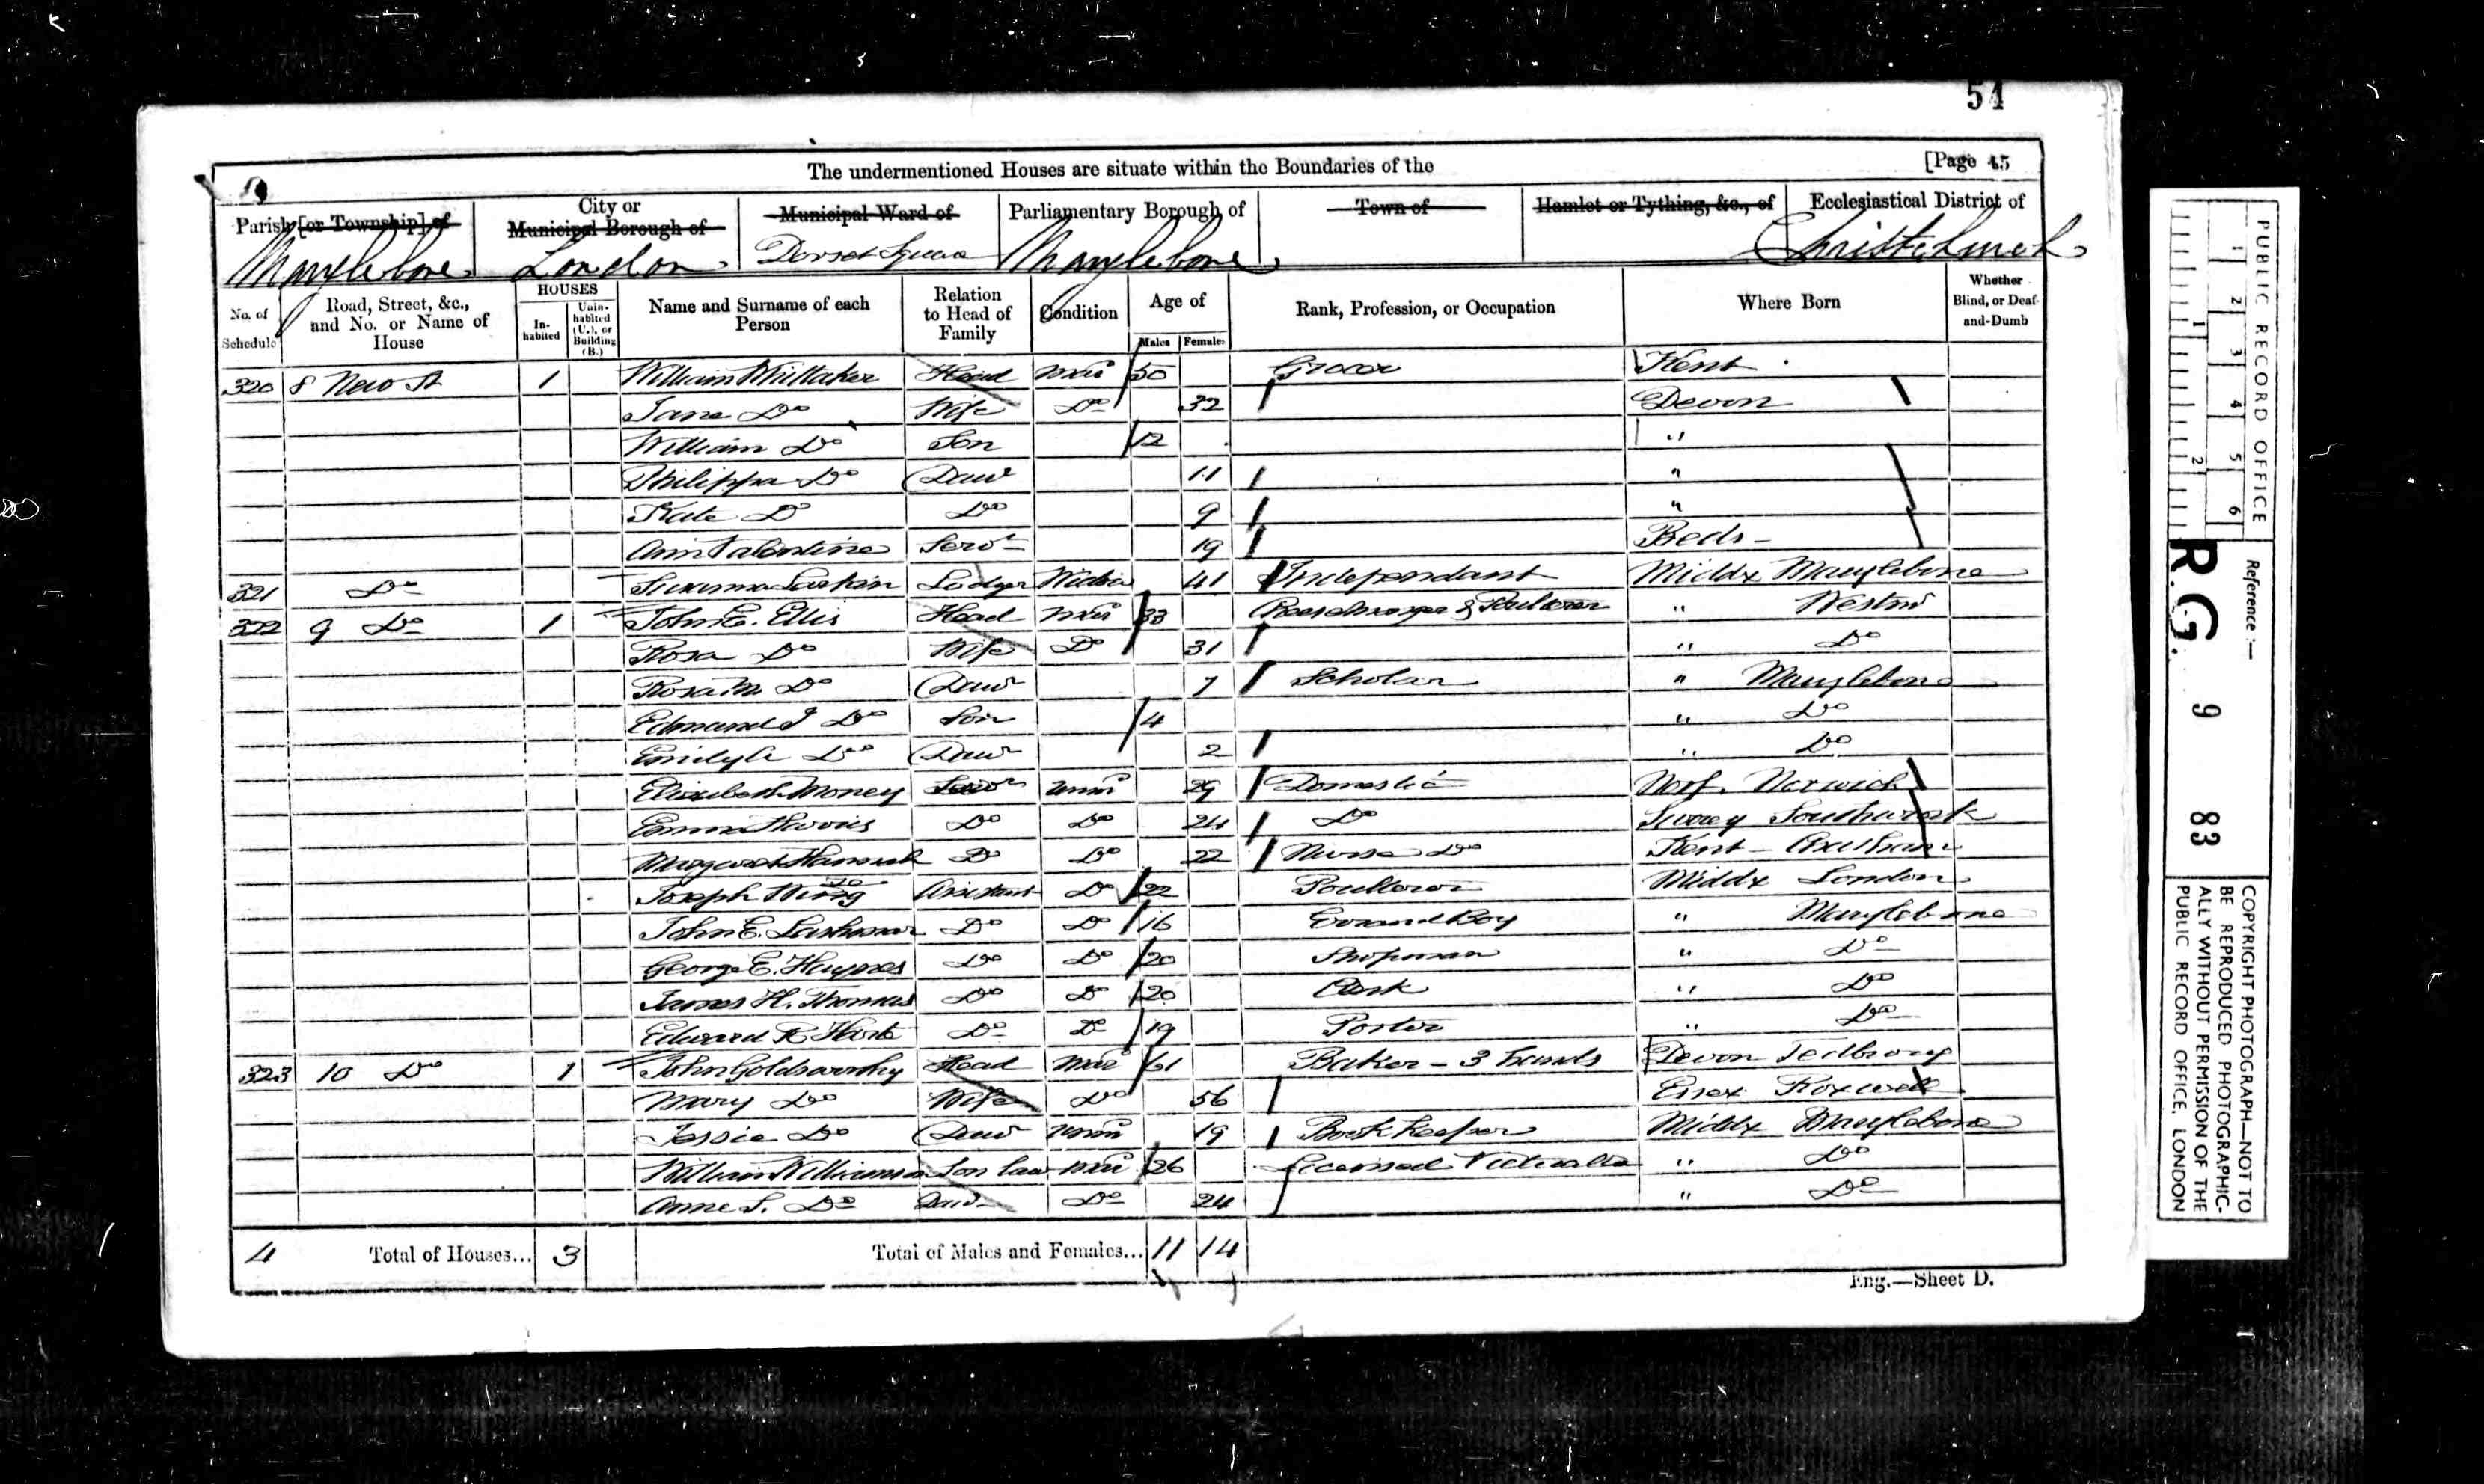 51
The undermentioned Houses are situate within the Boundaries of the [Page 45
Parish [or Township] of Marylebone
City or Municipal Borough of London
Municipal Ward of Dorset Square
Parliamentary Borough of Marylebone
Town of
Hamlet or Tything, &c., of
Ecclesiastical District of Christchurch
No. of Schedule
Road, Street, &c., and No. or Name of House
HOUSES
In-habited
Unin-habited (U.), or Building (B.)
Name and Surname of each Person
Relation to Head of Family
Condition
Age of
Males Females
Rank, Profession, or Occupation
Where Born
Whether Blind, or Deaf-and-Dumb
320 8 New St 1 William Whittaker Head Mar 50 Grocer Kent
Jane Do Wife Do 32 Devon
William Do Son 12 "
Philippa Do Daur 11 "
Kate Do Do 9 "
Ann Valentine Servt 19 Beds
321 Do Larkin Lodger Widow 41 Independant Middx Marylebone
322 9 Do 1 John E. Ellis Head Mar 33 Cheesemonger & Poulterer " Westmr
Rosa Do Wife Do 31 " Do
Rosa M Do Daur 7 Scholar " Marylebone
Edmund J Do Son 4 " Do
Do Daur 2 " Do
Elizabeth Money Servt Unmr 29 Domestic Norf. Norwich
Emma Do Do 24 Do Surrey Southwark
Margaret Do Do 22 Nurse Do Kent
Joseph Assistant Do 22 Poulterer Middx London
John E. Do Do 16 Errand Boy " Marylebone
George E. Haynes Do Do 20 Shopman " Do
James H. Thomas Do Do 20 Clerk " Do
Edward R Do Do 19 Porter " Do
323 10 Do 1 John Goldsworthy Head Mar 61 Baker - 3 hands Devon
Mary Do Wife Do 56 Essex Roxwell
Jessie Do Daur Unmr 19 Book Keeper Middx Marylebone
William Williamson Son law Mar 26 Licensed Victualler " Do
Anne S. Do Daur Do 24 " Do
4 Total of Houses... 3 Total of Males and Females... 11 14
Eng.—Sheet D.
PUBLIC RECORD OFFICE
1 2 3 4 5 6
1 2
Reference :—
R.G. 9 83
COPYRIGHT PHOTOGRAPH—NOT TO
BE REPRODUCED PHOTOGRAPHIC-
ALLY WITHOUT PERMISSION OF THE
PUBLIC RECORD OFFICE, LONDON